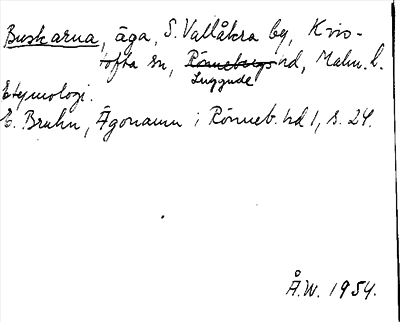 Buskarna, äga, S. Vallåkra by, Kvis-
tofta sn, Rönnebergs hd, Malm. l.
Luggude
Etymologi.
E. Bruhn, Ägonamn i Rönneb. hd 1, s. 24.
Å.W. 1954.